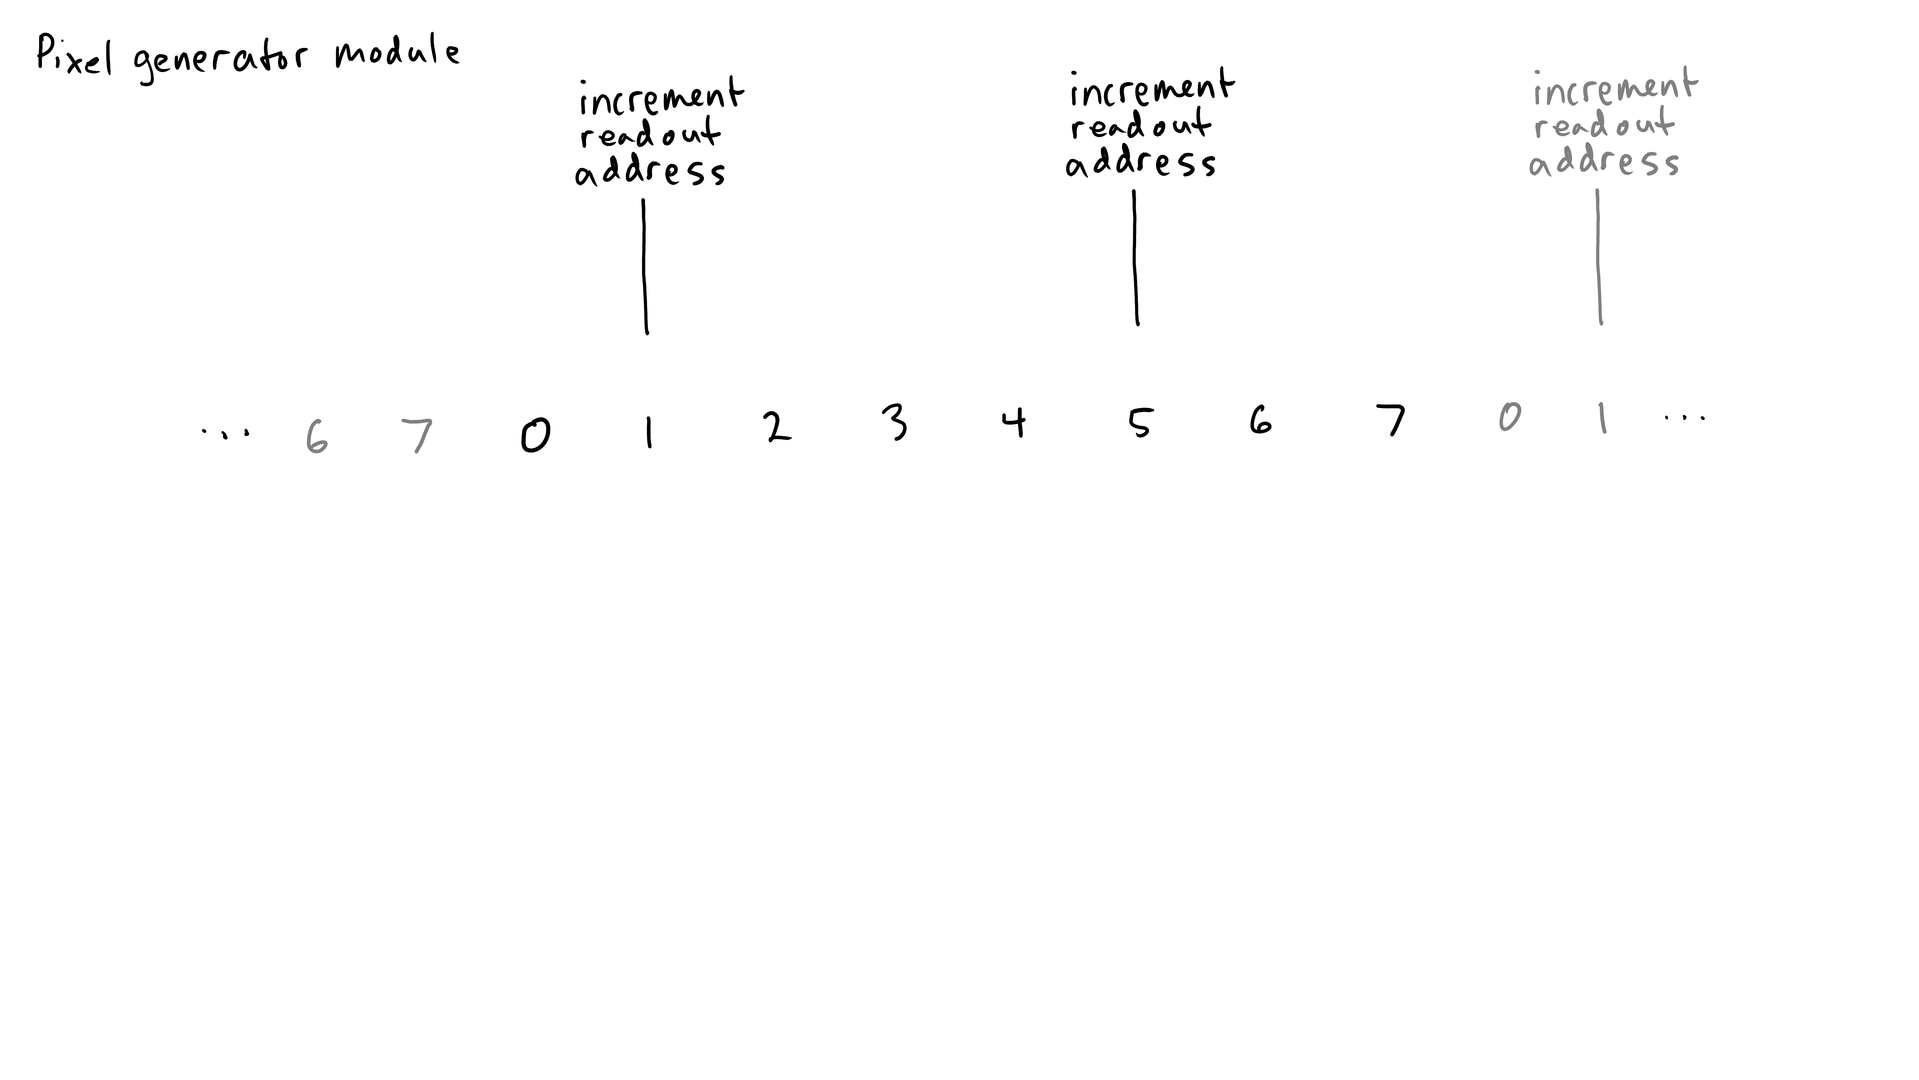 Pixel generator module
increment
readout
address
increment
readout
address
increment
readout
address
... 6 7 0 1 2 3 4 5 6 7 0 1 ...